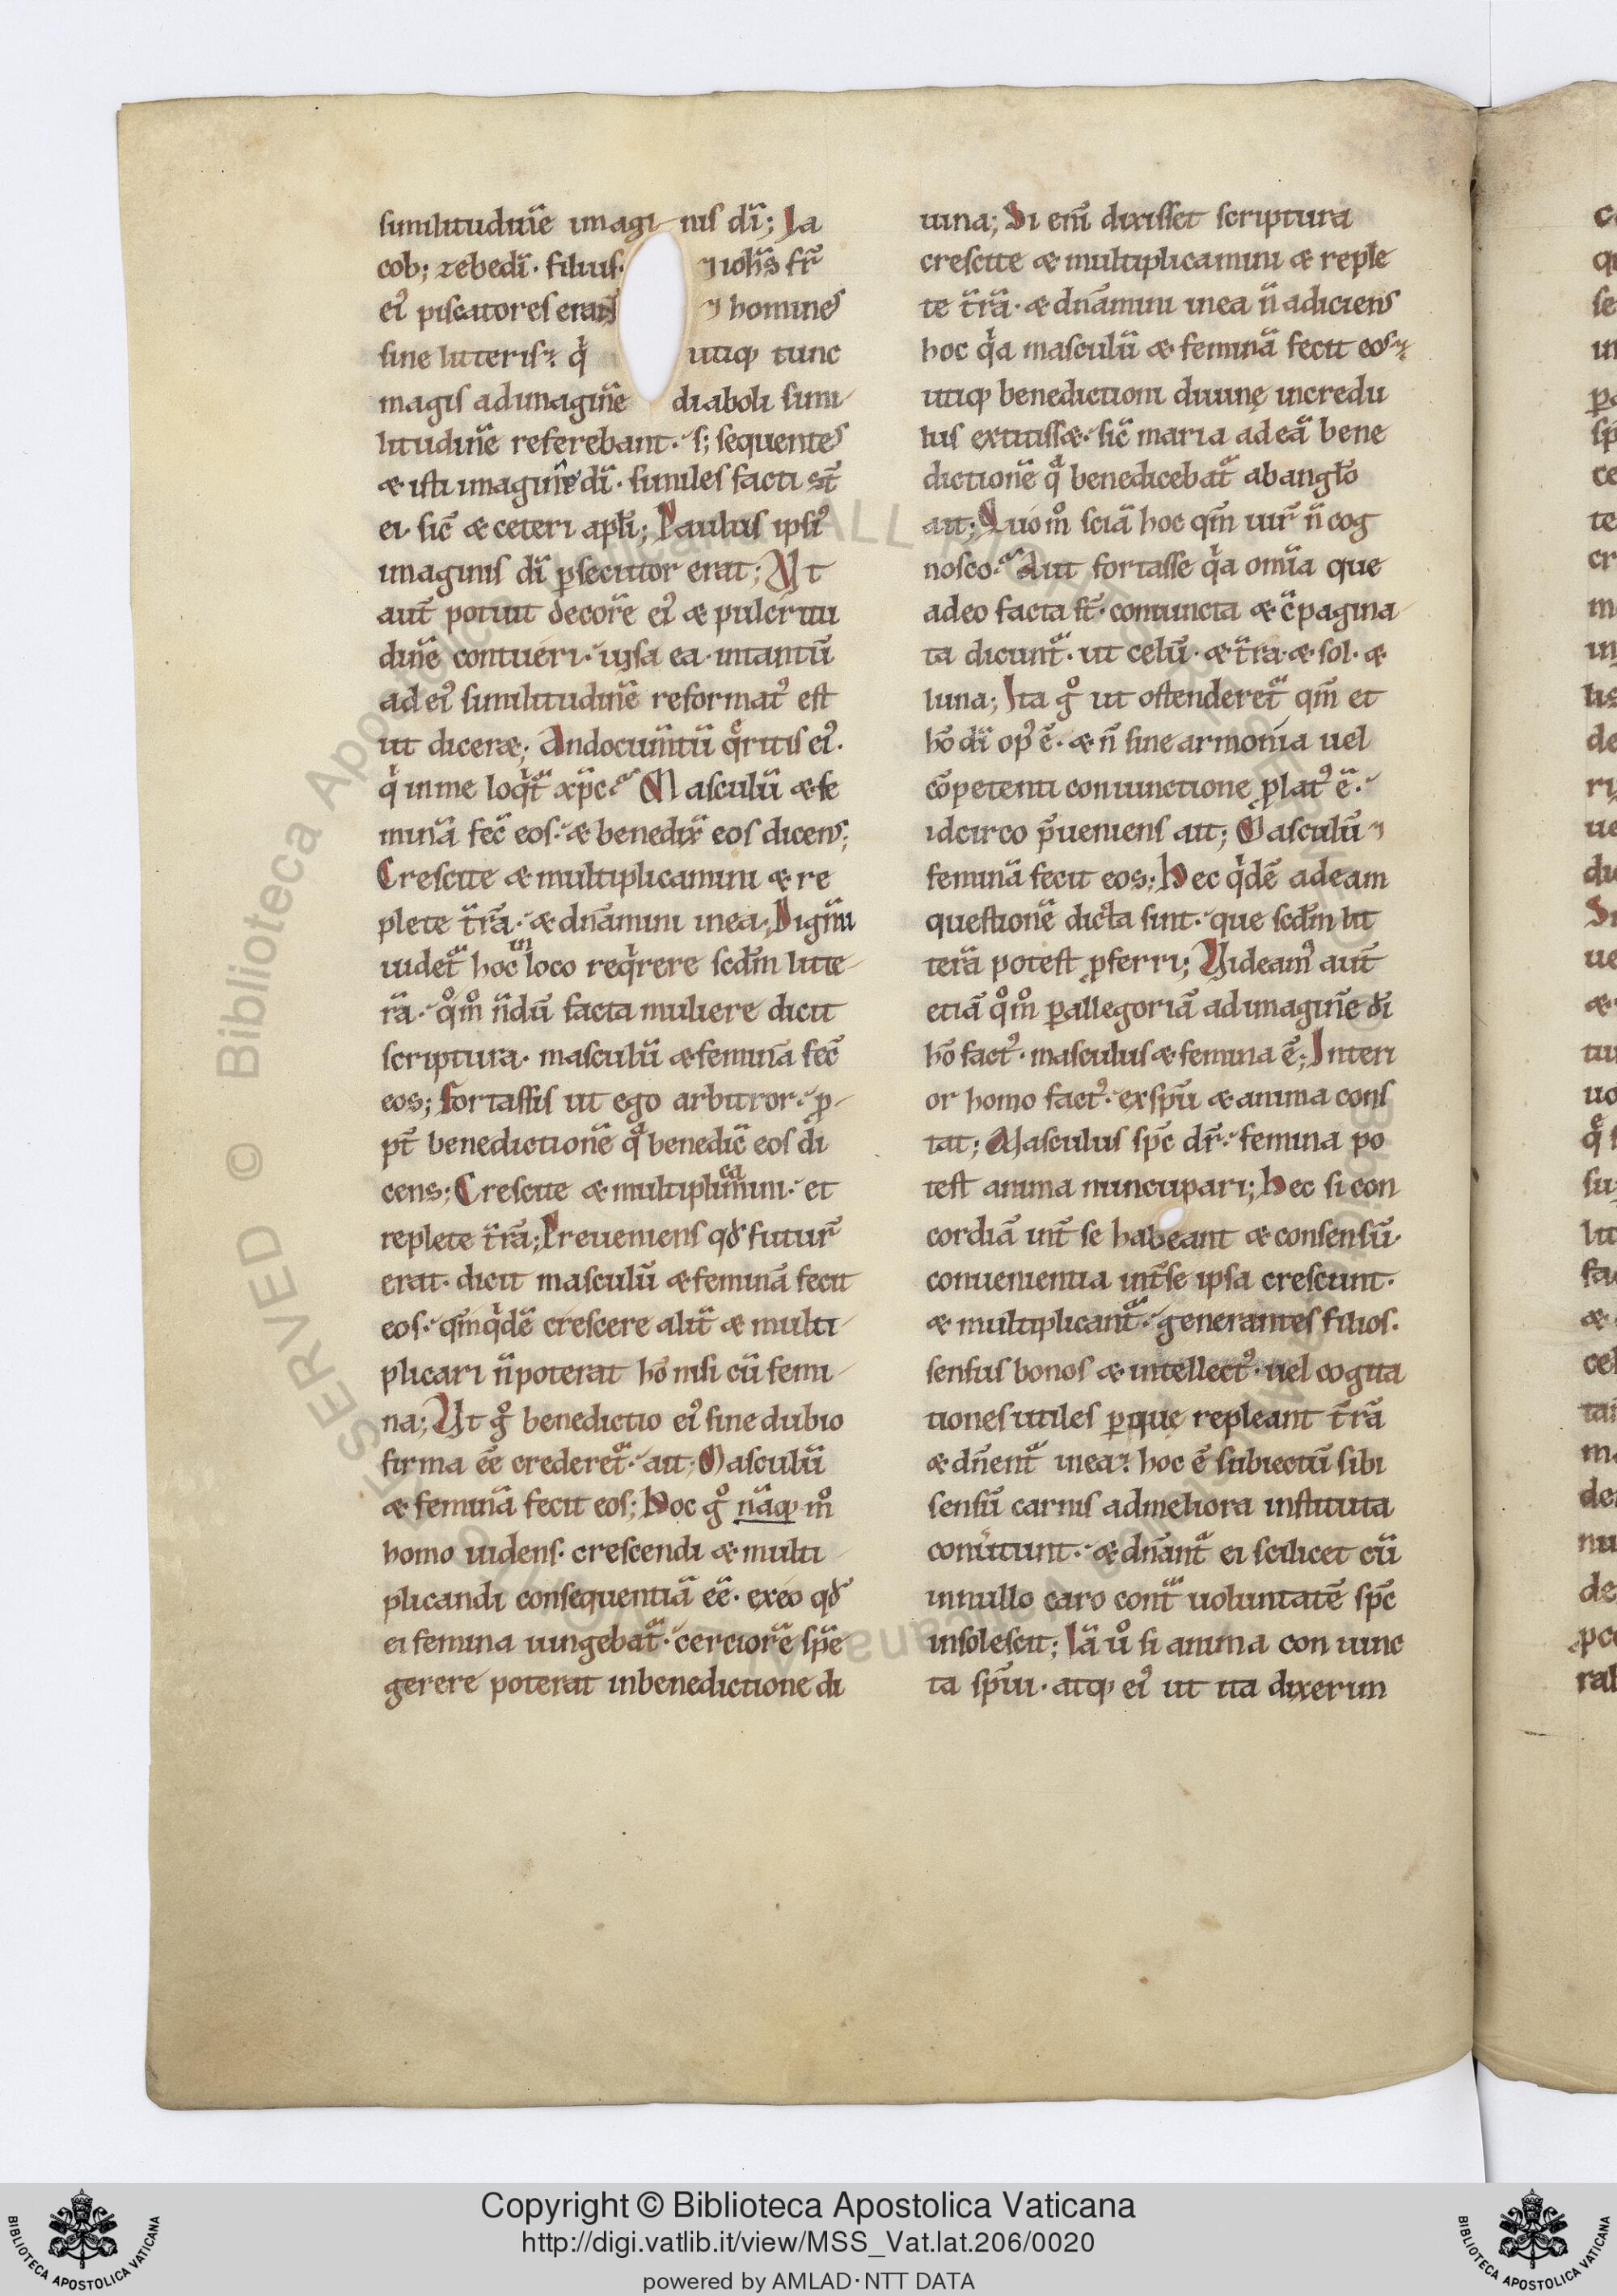 similitudinē imagi nis dī; Ia
cob; zebedī. filius. ⁊ iohīs fr̄
ei᾽ piscatores erant ⁊ homines
sine litteris; q̇ utiq; tunc
magis ad imaginē diaboli simi
litudinē referebant. s; sequentes
æ isti imaginē dī. similes facti st̄
ei. sic̄ æ ceteri apłi; Paulus ipsi᾽
imaginis dī ꝑsecutor erat; Vt
aut̄ potuit decorē ei᾽ æ pulcritu
dinē contueri. uisa ea. intantū
ad ei᾽ similitudinē reformat᾽ est
ut diceræ; An documtū q̄ritis ei᾽.
q̇ in me loqt̄ xp̄c. Masculū æ fe
minā fec̄ eos. æ benedix̄ eos dicens;
Crescite æ multiplicamini æ re
plete t̄rā. æ dn̄amini in ea; Dignū
uidet̄ hoc in loco reqrere scd̄m litte
rā. qͦmͦ n̄dū facta muliere dicit
scriptura. masculū æ feminā fec̄
eos; Fortassis ut ego arbitror. ꝓ
pt̄ benedictionē qͣ benedic̄ eos di
cens; Crescite æ multiplicamini. et
replete t̄rā; Preueniens qd̄ futur̄
erat. dicit masculū æ feminā fecit
eos. qm̄ qdē crescere alit̄ æ multi
plicari n̄ poterat hō nisi cū femi
na; Vt gͦ benedictio ei᾽ sine dubio
firma ēē crederet̄. ait; Masculū
æ feminā fecit eos; Hoc gͦ nāq; mͦ
homo uidens. crescendi æ multi
plicandi consequentiā ēē. ex eo qd̄
ei femina iungebat̄. cerciorē spē
gerere poterat in benedictione di
uina; Si enī dixisset scriptura
crescite æ multiplicamini æ reple
te t̄rā. æ dn̄amini in ea n̄ adiciens
hoc qa masculū æ feminā fecit eos;
utiq; benedictioni diuinę incredu
lus extitissæ. sic̄ maria ad eā bene
dictionē qͣ benedicebat̄ ab angło
ait; Quomͦ sciā hoc qm̄ uir̄ n̄ cog
nosco. Aut fortasse qa omīa que
a deo facta st̄. coniuncta æ c̄pagina
ta dicunt̄. ut celū. æ t̄ra. æ sol. æ
luna; Ita gͦ ut ostenderet̄ qm̄ et
hō dī op᾽ ē. æ n̄ sine armonia uel
cōpetenti coniunctione ꝓlat᾽ ē.
idcirco p̄ueniens ait; Masculū ⁊
feminā fecit eos; Hec qdē ad eam
questionē dicta sint. que scd̄m lit
terā potest ꝓferri; Videam᾽ aut̄
etiā qͦmͦ ꝑ allegoriā ad imaginē dī
hō fact᾽. masculus æ femina ē; Interi
or homo fact᾽. ex spū æ anima cons
tat; Masculus spc̄ dr̄. femina po
test anima nuncupari; Hec si con
cordiā int̄ se habeant æ consensū.
conuenientia int̄ se ipsa crescunt.
æ multiplicant̄. generantes filios.
sensus bonos æ intellect᾽. uel cogita
tiones utiles ꝑ que repleant t̄rā
æ dn̄ent̄ in ea; hoc ē subiectū sibi
sensū carnis ad meliora instituta
conu̇tunt. æ dn̄ant̄ ei scilicet cū
in nullo caro cont̄ uoluntatē spc̄
insolescit; Iā uͦ si anima coniunc
ta spūi. atq; ei᾽ ut ita dixerim
Copyright © Biblioteca Apostolica Vaticana
http://digi.vatlib.it/view/MSS_Vat.lat.206/0020
powered by AMLAD·NTT DATA